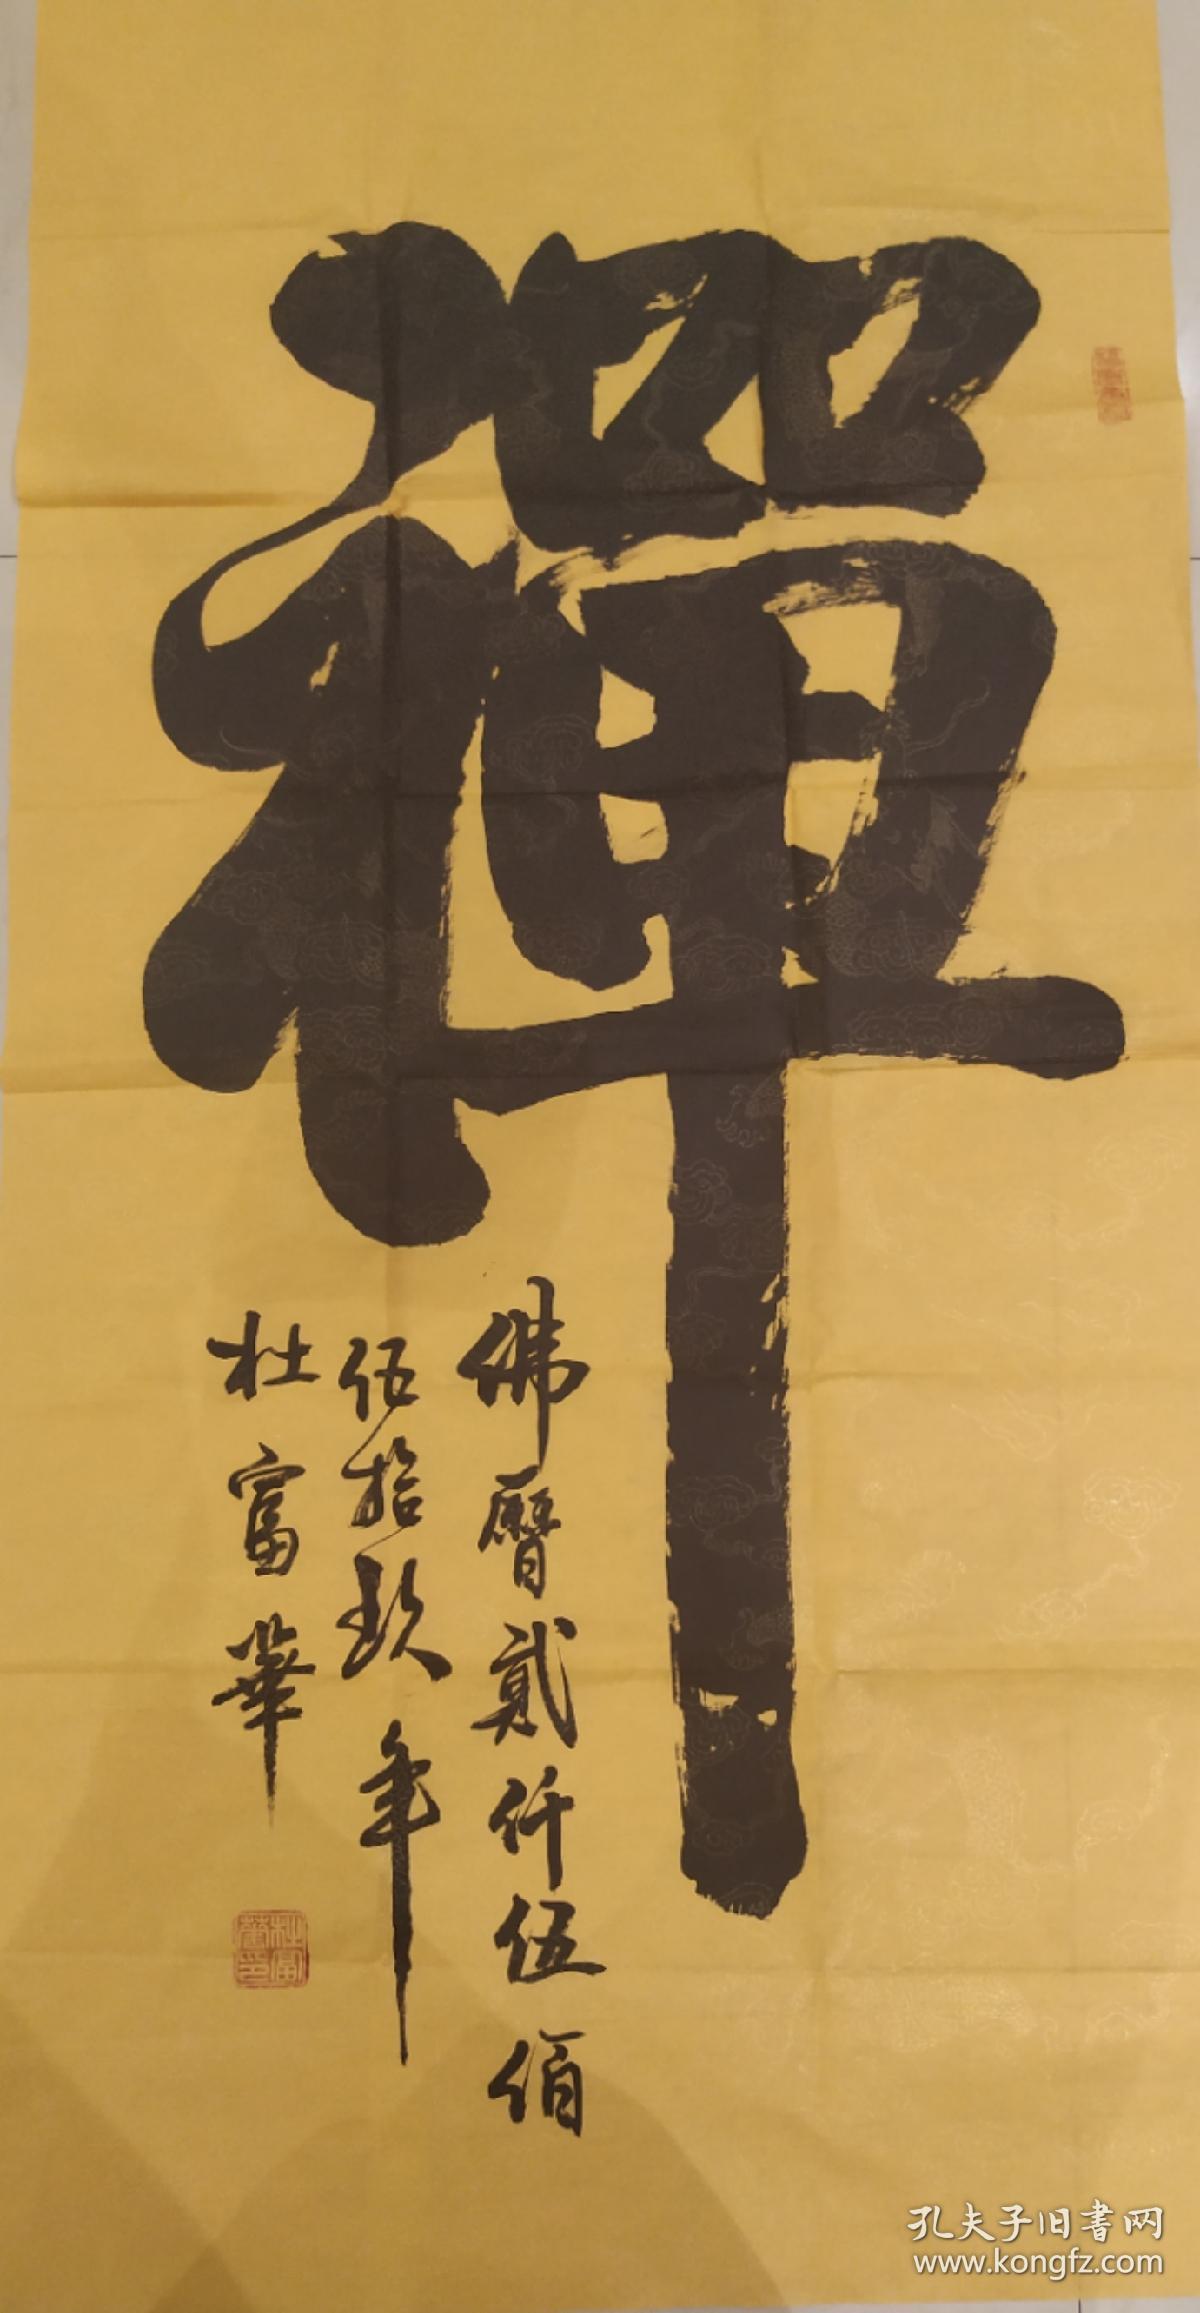 禪
佛曆貳仟伍佰
伍拾玖年
杜富華
杜富華印
孔夫子旧書网
www.kongfz.com